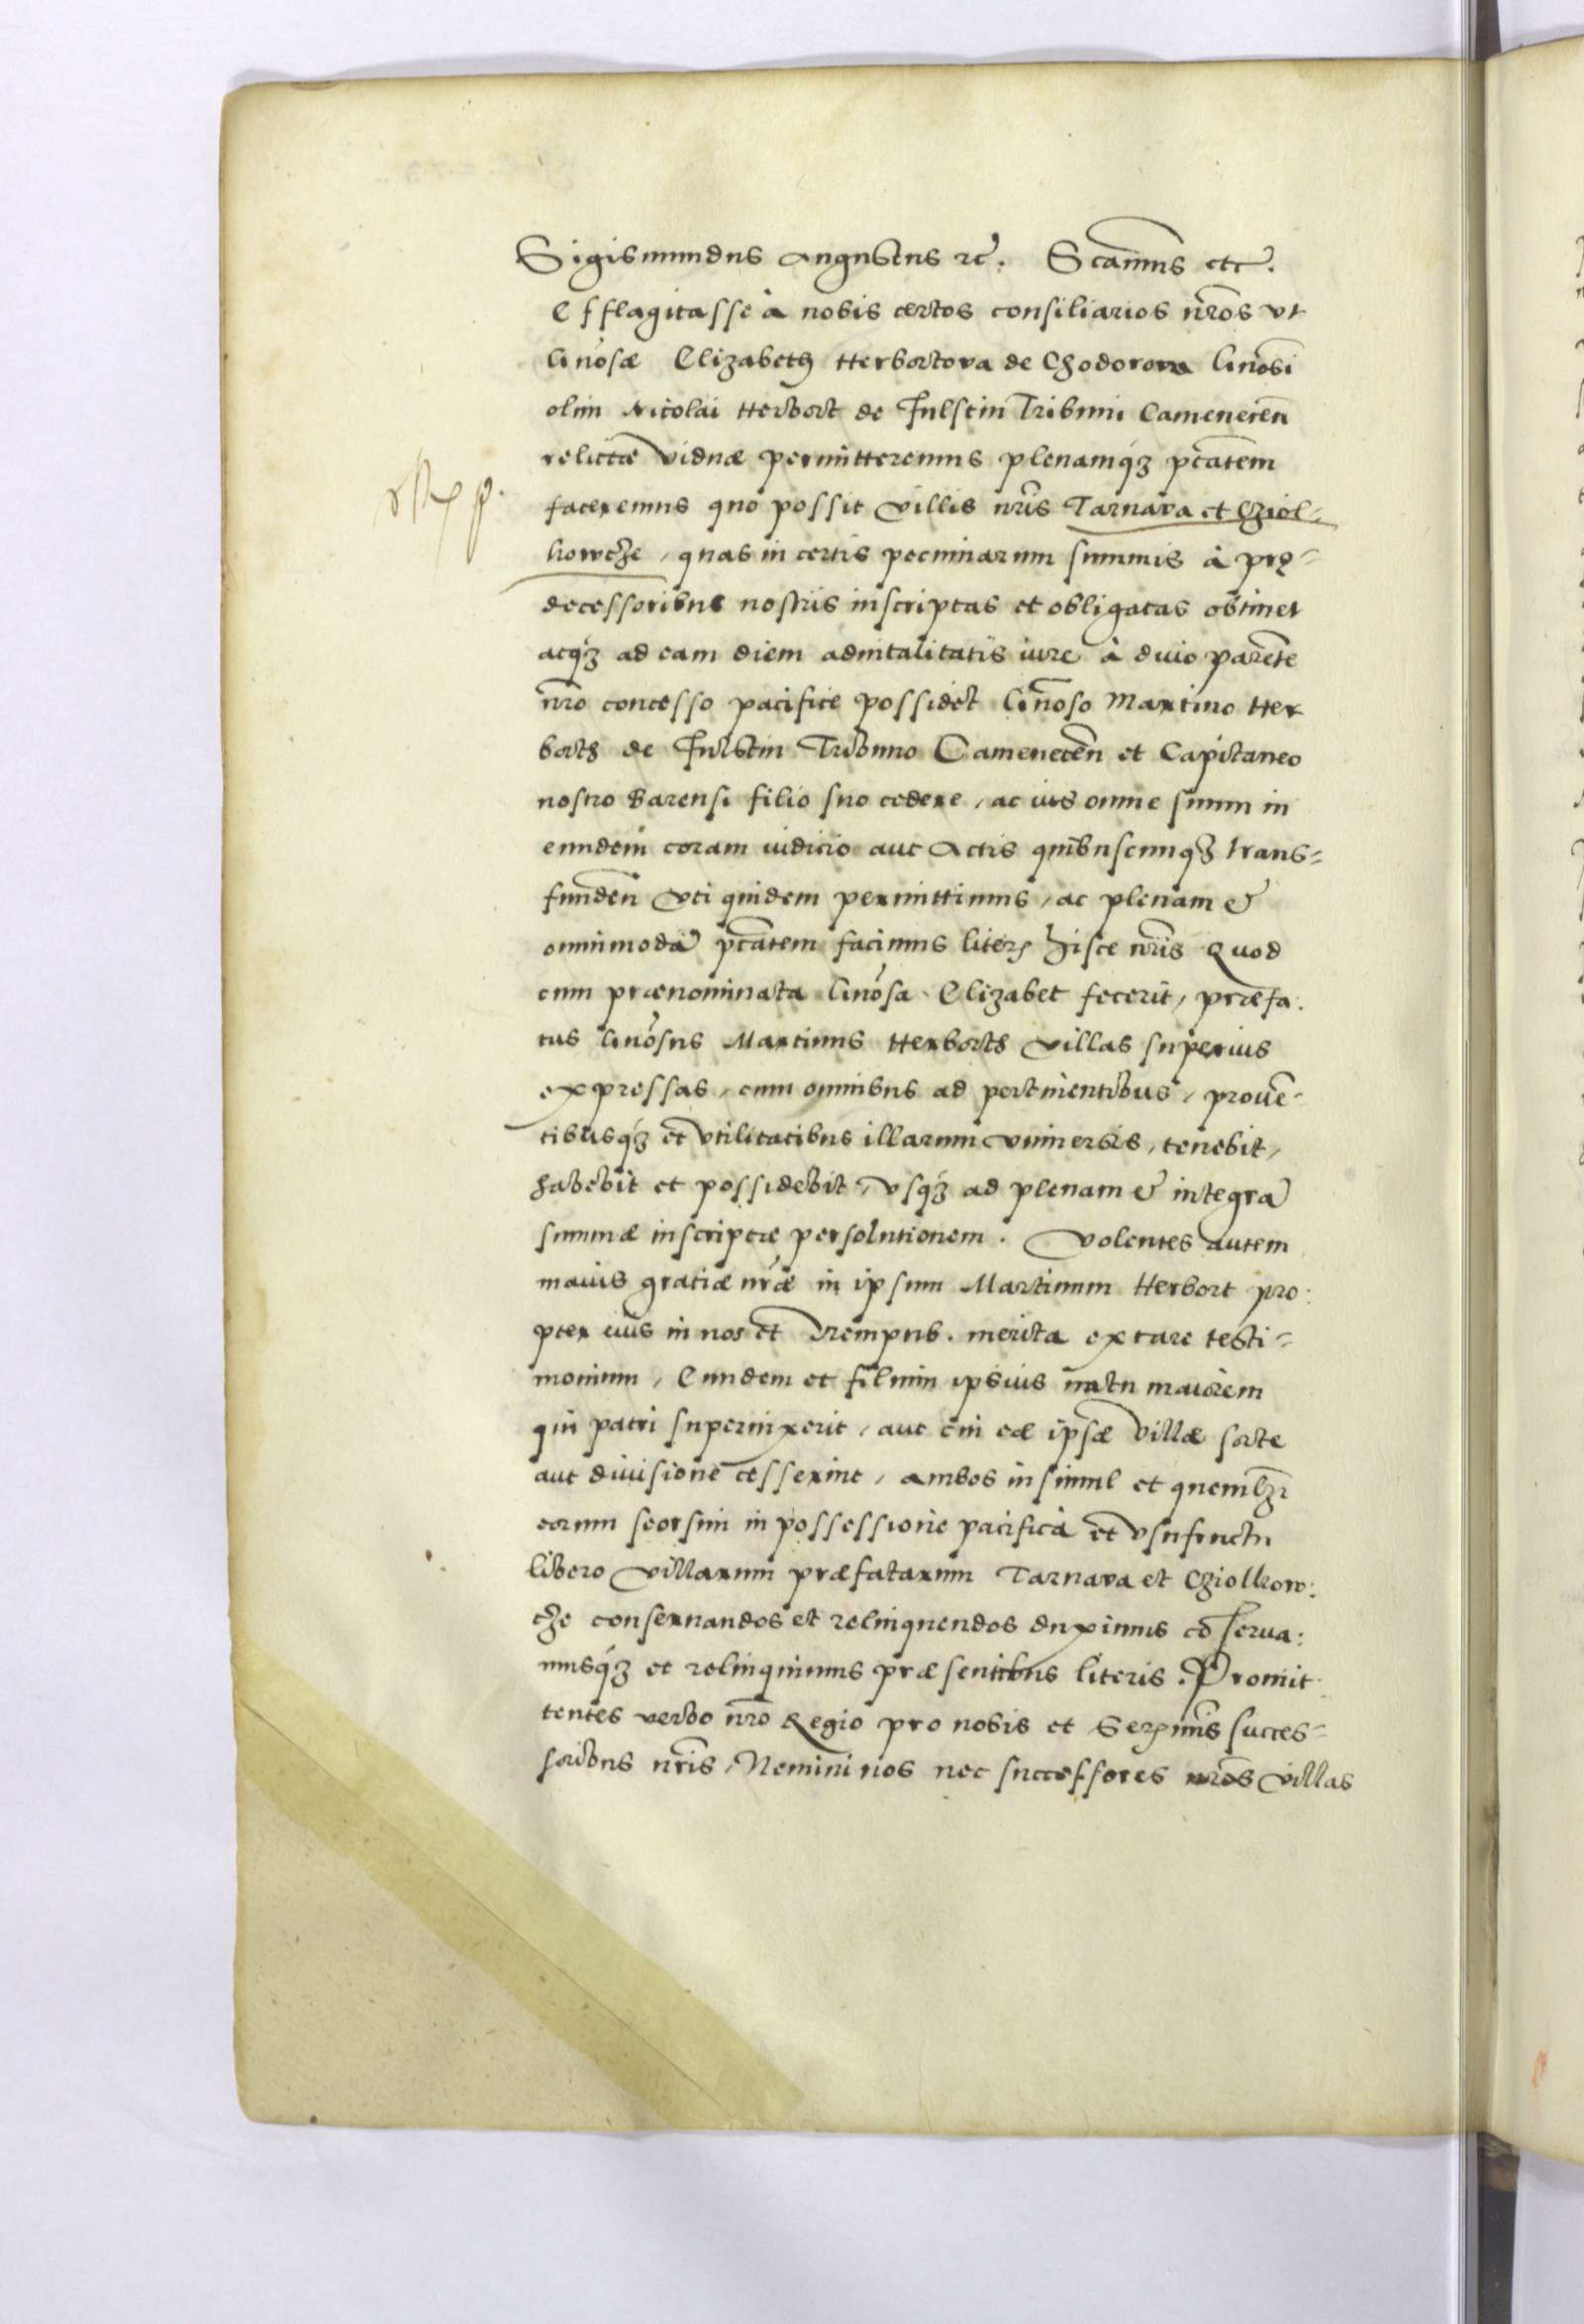 Sigismundus Augustus rc. Scamus etc.
Efflagitasse à nobis certos consiliarios nros vt
Gnosæ Elizabeth Herbortova de Chodorova Gnosi
olim Nicolai Herbort de Fulstin Tribuni Camenecen
relictæ viduæ permitteremus plenamq3 ptatem
faceremus quo possit villis nris Tarnava et Cziol-
kowcze, quas in certis pecuniarum summis à præ-
decessoribus nostris inscriptas et obligatas obtinet
atq3 ad eam diem aduitalitatis iure à diuo parente
nro concesso pacifice possidet Gnoso Martino Her
borth de Fulstin Tribuno Camenecen et Capitaneo
nostro Barensi filio suo cedere, ac ius omne suum in
eundem coram iudicio aut Actis quibuscumq3 trans-
funden vti quidem permittimus, ac plenam et
omnimodã ptatem facimus liters hisce nris Quod
cum prænominata Gnosa Elizabet fecerit, præfa:
tus Gnosus Martinus Herborth villas superius
expressas, cum omnibus ad pertinentibus, prouẽ-
tibusq3 et vtilitatibus illarum vniuersis, tenebit,
habebit et possidebit, vsq3 ad plenam et integrã
summæ inscriptæ persolutionem. Volentes autem
maius gratiæ nræ in ipsum Martinum Herbort pro:
pter eius in nos et Rempub. merita extare testi-
monium, Eundem et filium ipsius natu maiorem
qui patri superuixerit, aut cui eæ ipsæ villæ sorte
aut diuisione cesserint, ambos insimul et quemlz
eorum seorsim in possessione pacifica et vsufructu
libero villarum præfatarum Tarnava et Cziolkow:
cze conseruandos et relinquendos duximus cõserua:
musq3 et relinquimus præsentibus literis. Promit
tentes verbo nro Regio pro nobis et Sermis succes-
soribus nris, Nemini nos nec successores nros villas